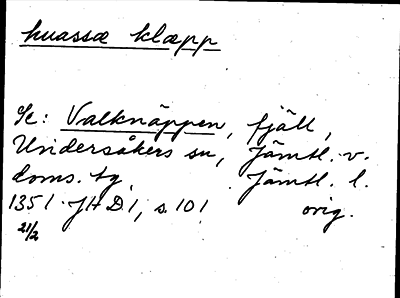 huassæ klæpp
Se: Valknäppen, fjäll,
Undersåkers sn, Jämtl. v.
doms. tg. Jämtl. l.
1351 21/2 JHD1, s. 101 orig.